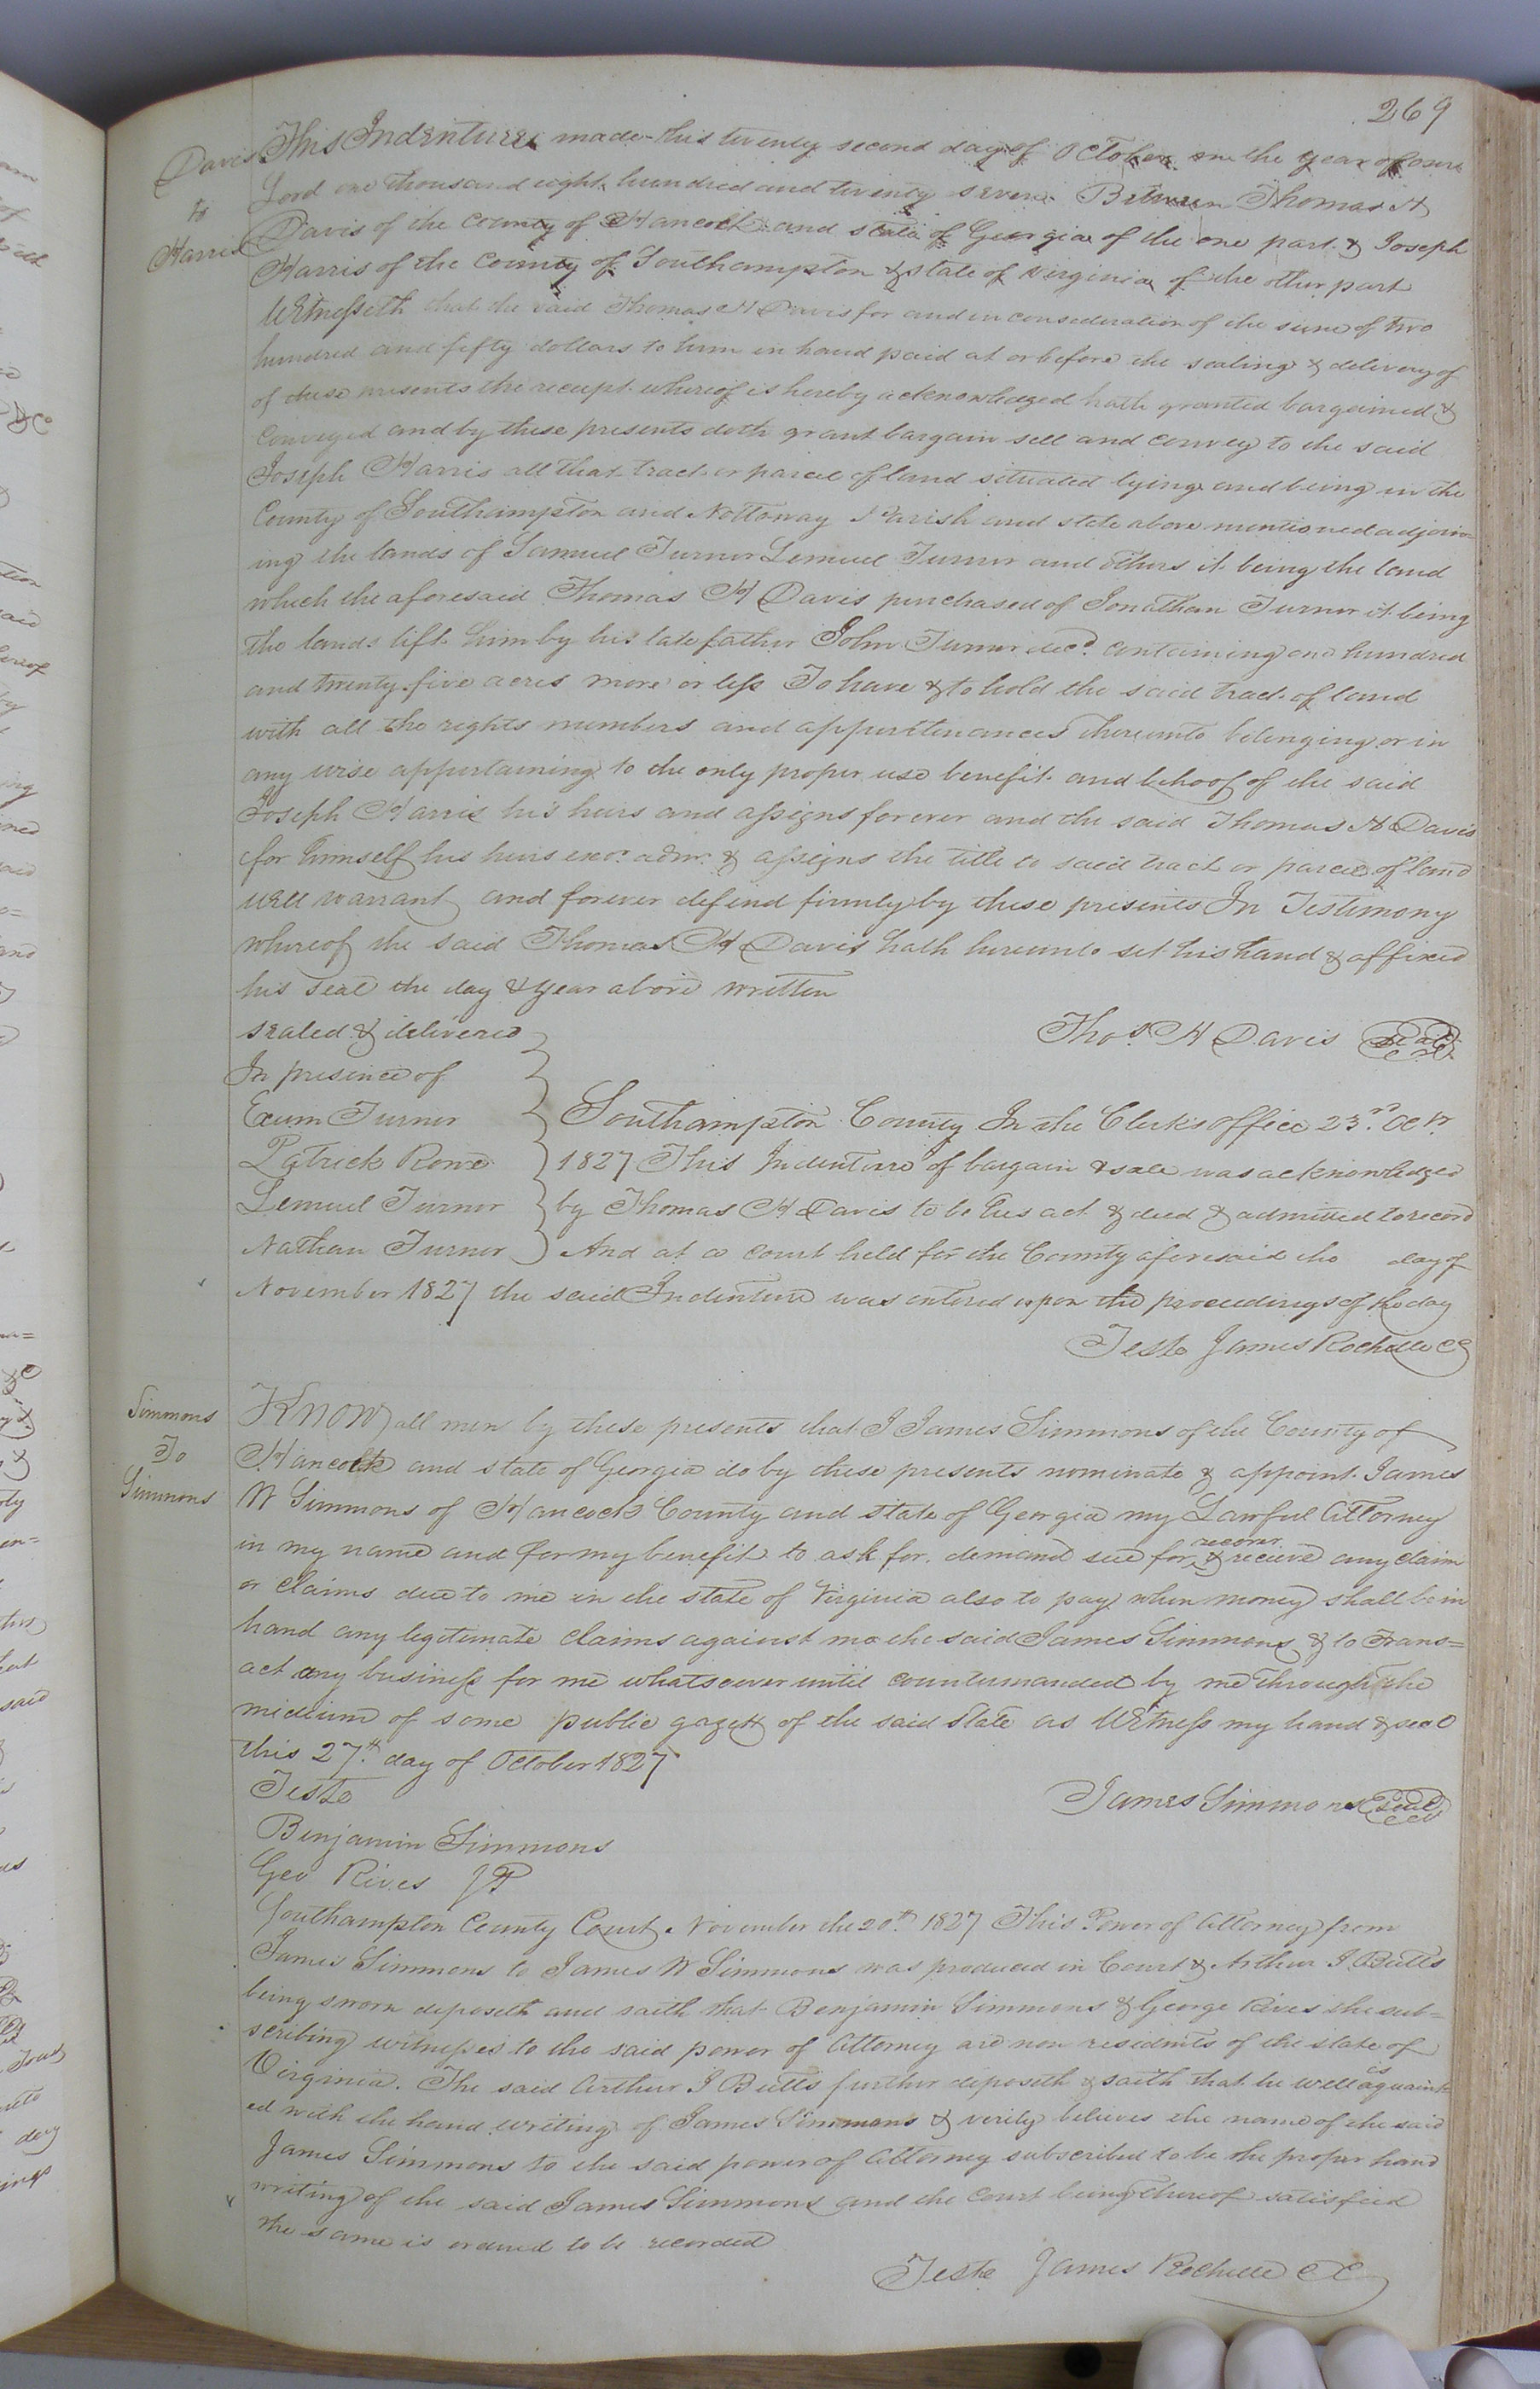 269
Davis
to
Harris
This Indenture made this twenty second day of October in the year of our
Lord one thousand eight hundred and twenty seven Between Thomas H
Davis of the county of Hancock and state of Georgia of the one part & Joseph
Harris of the County of Southampton & state of Virginia of the other part
Witnesseth that the said Thomas H Davis for and in consideration of the sum of two
hundred and fifty dollars to him in hand paid at or before the sealing & delivery of
of these presents the receipt whereof is hereby acknowledged hath granted bargained &
Conveyed and by these presents doth grant bargain sell and convey to the said
Joseph Harris all that tract or parcel of land situated lying and being in the
County of Southampton and Nottoway Parish and state above mentioned adjoin=
ing the lands of Samuel Turner Lemuel Turner and others it being the land
which the aforesaid Thomas H Davis purchased of Jonathan Turner it being
the lands lift him by his late father John Turner decd. containing one hundred
and twenty five acres more or less To have & to hold the said tract of land
with all the rights members and appurtenances thereunto belonging or in
any wise appertaining to the only proper use benefit and behoof of the said
Joseph Harris his heirs and assigns forever and the said Thomas H Davis
for himself his heirs exor. admr. & assigns the title to said tract or parcel of land
will warrant and forever defend firmly by these presents In Testimony
whereof the said Thomas H Davis hath hereunto set his hand & affixed
his seal the day & year above written
sealed & delivered
Thos. H Davis Seal
In presence of
Exum Turner
Patrick Rowe
Lemuel Turner
Nathan Turner
Southampton County In the Clerks office 23rd. Octr.
1827 This Indenture of bargain & sale was acknowledged
by Thomas H Davis to be his act & deed & admitted to record
And at a court held for the County aforesaid the day of
November 1827 the said Indenture was entered upon the proceedings of the day
Teste James Rochelle CC
Simmons
To
Simmons
KNOW all men by these presents that I James Simmons of the County of
Hancock and state of Georgia do by these presents nominate & appoint James
W Simmons of Hancock County and state of Georgia my Lawful Attorney
in my name and for my benefit to ask for, demand sue for, recover & recieve any claim
or claims due to me in the state of Virginia also to pay when money shall be in
hand any legitimate claims against me the said James Simmons & to Trans=
act any business for me whatsoever until countermanded by me through the
midium of some public gazett of the said state as Witness my hand & seal
this 27th. day of October 1827
Teste
James Simmons Seal
Benjamin Simmons
Geo Rives JP
Southampton County Court November the 20th. 1827 This Power of Attorney from
James Simmons to James W Simmons was produced in Court & Arthur J Butts
being sworn deposeth and saith that Benjamin Simmons & George Rives the sub=
scribing witnesses to the said power of Attorney are non residents of the state of
Virginia. The said Arthur J Butts further deposeth & saith that he is well aquaint=
ed with the hand writing of James Simmons & verily believes the name of the said
James Simmons to the said power of Attorney subscribed to be the proper hand
writing of the said James Simmons and the court being thereof satisfied
the same is ordered to be recorded
Teste James Rochelle CC